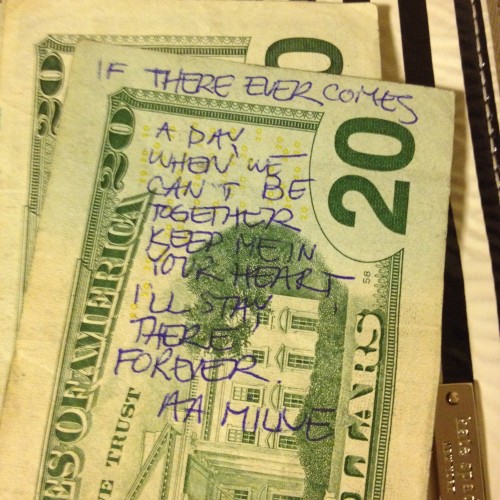 IF THERE EVER COMES
A DAY,
WHEN WE
CAN'T BE
TOGETHER
KEEP ME IN
YOUR HEART,
I'LL STAY
THERE
FOREVER.
AA MILNE
20
20
20
ES OF AMERICA
WE TRUST
LLARS
58
kate spade